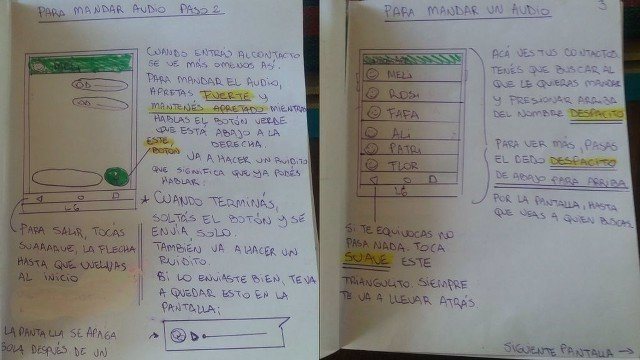 PARA MANDAR AUDIO PASO 2
CUANDO ENTRÁS AL CONTACTO
SE VE MÁS O MENOS ASÍ.
PARA MANDAR EL AUDIO,
APRETÁS FUERTE Y
MANTENÉS APRETADO MIENTRAS
HABLAS EL BOTÓN VERDE
QUE ESTA ABAJO A LA
DERECHA.
ESTE
BOTÓN
VA A HACER UN RUIDITO
QUE SIGNIFICA QUE YA PODÉS
HABLAR.
LG
* CUANDO TERMINÁS,
SOLTÁS EL BOTÓN Y SE
ENVÍA SOLO.
TAMBIÉN VA A HACER UN
RUIDITO.
SI LO ENVIASTE BIEN, TE VA
A QUEDAR ESTO EN LA
PANTALLA:
PARA SALIR, TOCÁS
SUAAAAVE, LA FLECHA
HASTA QUE VUELVAS
AL INICIO
LA PANTALLA SE APAGA
SOLA DESPUÉS DE UN
PARA MANDAR UN AUDIO
3
MELI
ROSI
FAFA
ALI
PATRI
FLOR
LG
ACÁ VES TUS CONTACTOS.
TENÉS QUE BUSCAR AL
QUE LE QUIERAS MANDAR
Y PRESIONAR ARRIBA
DEL NOMBRE DESPACITO
PARA VER MÁS, PASAS
EL DEDO DESPACITO
DE ABAJO PARA ARRIBA
POR LA PANTALLA, HASTA
QUE VEAS A QUIEN BUSCAS
SI TE EQUIVOCAS NO
PASA NADA. TOCA
SUAVE ESTE
TRIANGULITO. SIEMPRE
TE VA A LLEVAR ATRÁS.
SIGUIENTE PANTALLA →